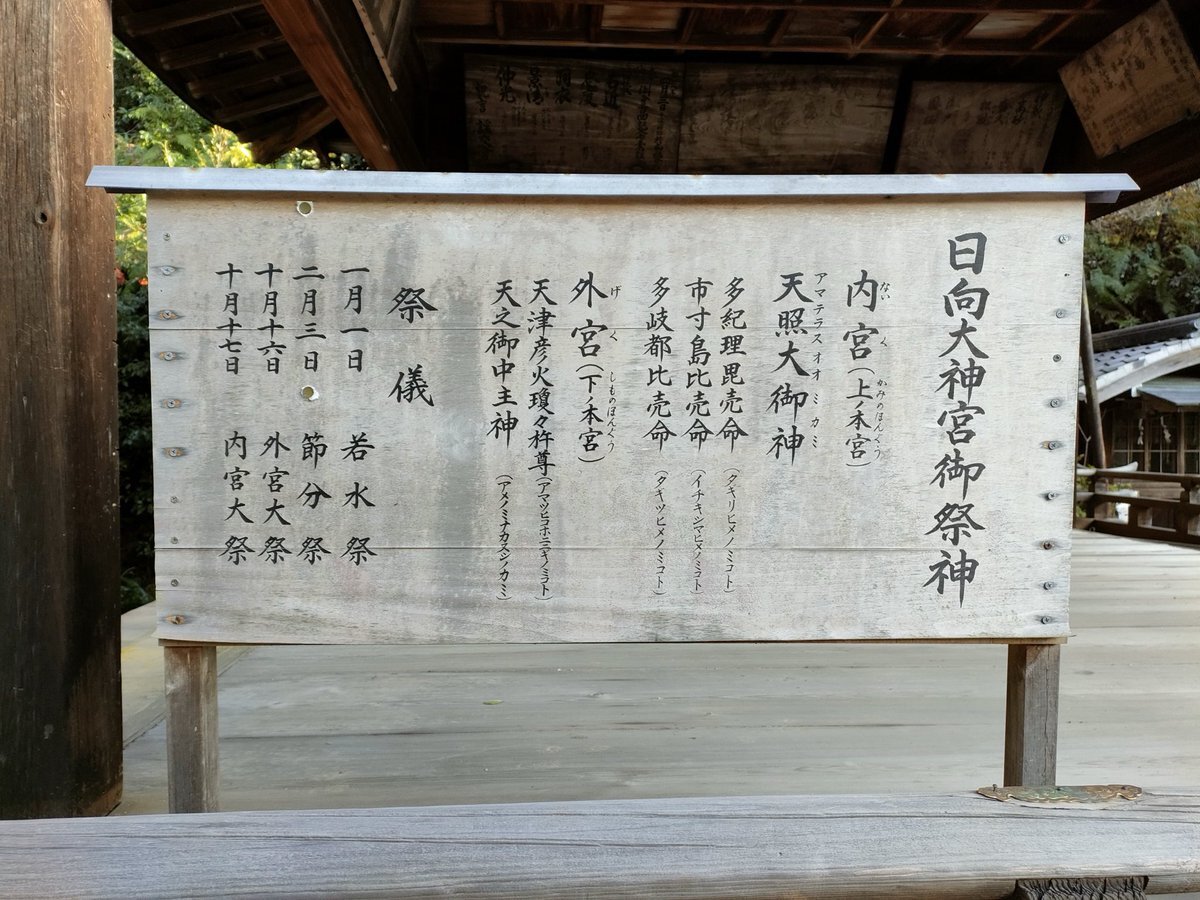 日向大神宮御祭神
内宮(上ノ本宮)
ない く かみのほんぐう
天照大御神
アマテラスオオミカミ
多紀理毘売命 (タキリヒメノミコト)
市寸島比売命 (イチキシマヒメノミコト)
多岐都比売命 (タキツヒメノミコト)
外宮(下ノ本宮)
げ く しものほんぐう
天津彦火瓊々杵尊(アマツヒコホニニギノミコト)
天之御中主神 (アメノミナカヌシノカミ)
祭儀
一月一日 若水祭
二月三日 節分祭
十月十六日 外宮大祭
十月十七日 内宮大祭